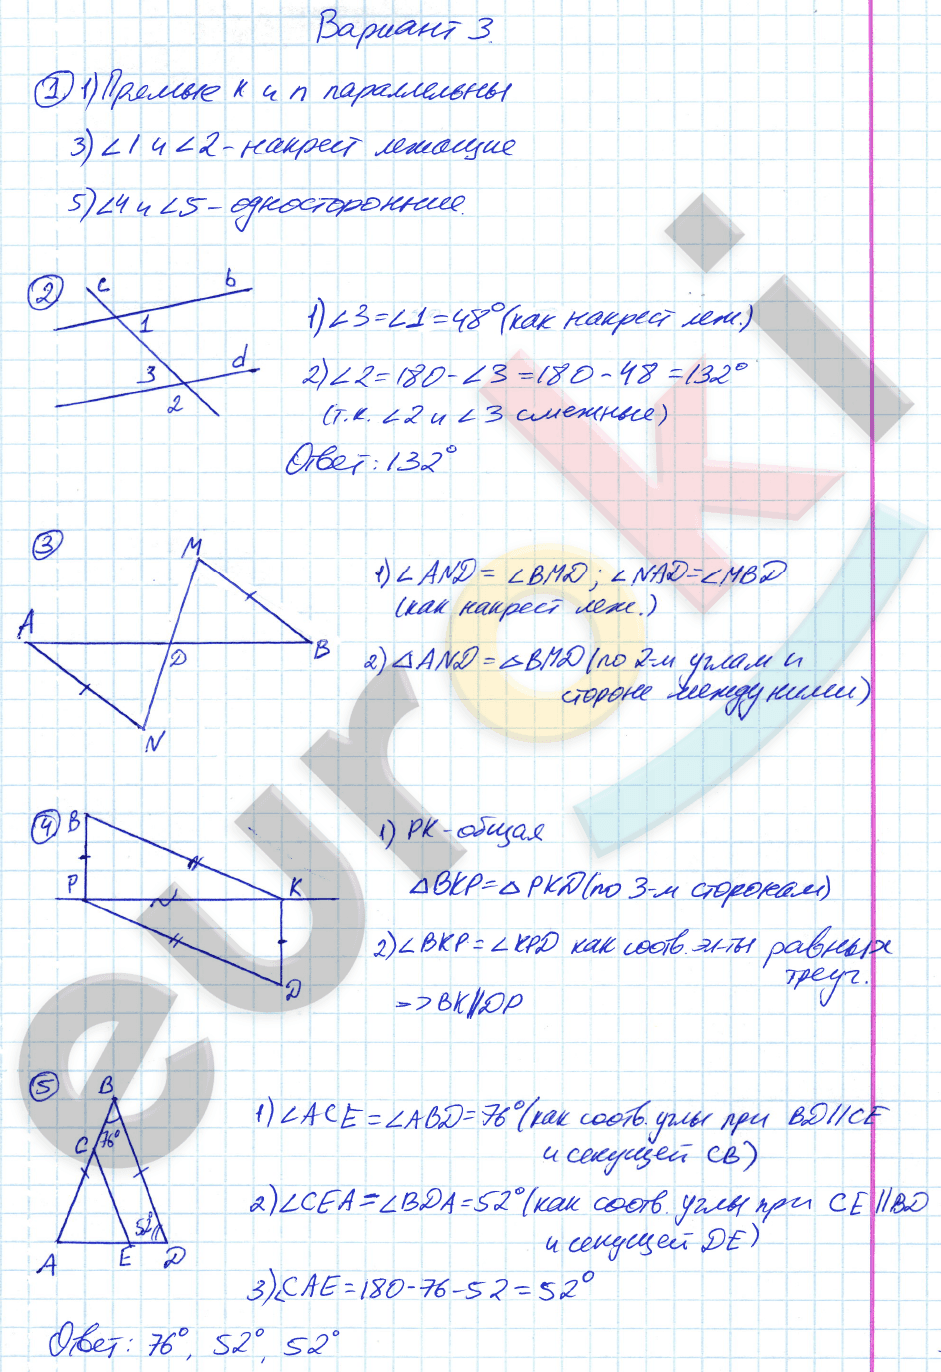 Вариант 3.
① 1) Прямые к и п параллельны
3) ∠1 и ∠2 - накрест лежащие
5) ∠4 и ∠5 - односторонние.
②
c
b
1
3
d
2
1) ∠3 = ∠1 = 48° (как накрест леж.)
2) ∠2 = 180 - ∠3 = 180 - 48 = 132°
(т.к. ∠2 и ∠3 смежные)
Ответ: 132°
③
M
A
D
B
N
1) ∠AND = ∠BMD; ∠NAD = ∠MBD
(как накрест леж.)
2) △AND = △BMD (по 2-м углам и
стороне между ними)
④
B
P
K
D
1) PK - общая
△BKP = △PKD (по 3-м сторонам)
2) ∠BKP = ∠KPD как соотв. эл-ты равных
треуг.
=> BK || DP
⑤
B
76°
C
52°
A
E
D
1) ∠ACE = ∠ABD = 76° (как соотв. углы при BD || CE
и секущей CB)
2) ∠CEA = ∠BDA = 52° (как соотв. углы при CE || BD
и секущей DE)
3) ∠CAE = 180 - 76 - 52 = 52°
Ответ: 76°, 52°, 52°
euroki